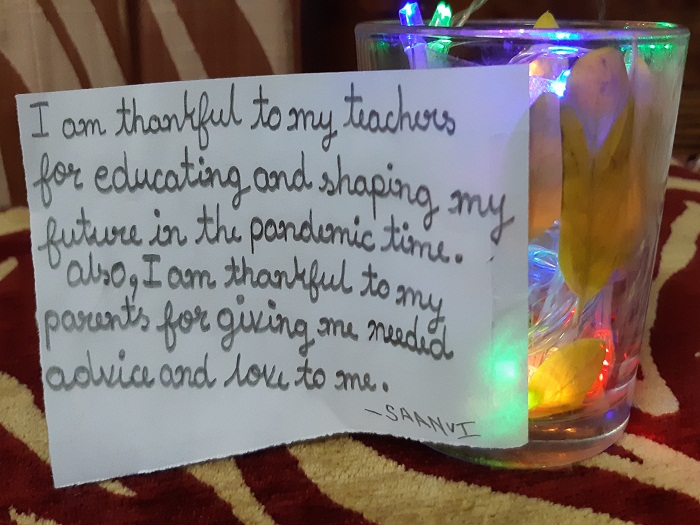 I am thankful to my teachers
for educating and shaping my
future in the pandemic time.
also, I am thankful to my
parents for giving me needed
advice and love to me.
-SAANVI